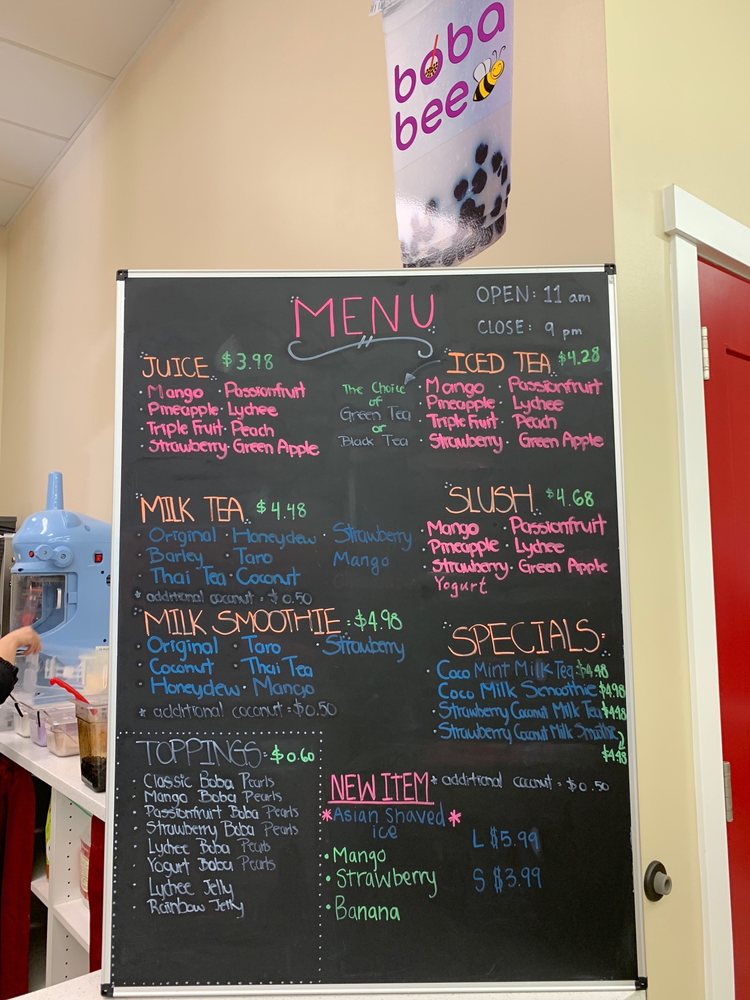 boba
bee
MENU
OPEN: 11 am
CLOSE: 9 pm
JUICE $3.98
· Mango · Passionfruit
· Pineapple · Lychee
· Triple Fruit · Peach
· Strawberry · Green Apple
The Choice
of
Green Tea
or
Black Tea
ICED TEA $4.28
· Mango · Passionfruit
· Pineapple · Lychee
· Triple Fruit · Peach
· Strawberry · Green Apple
MILK TEA $4.48
· Original · Honeydew · Strawberry
· Barley · Taro Mango
· Thai Tea · Coconut
* additional coconut = $0.50
SLUSH $4.68
· Mango · Passionfruit
· Pineapple · Lychee
· Strawberry · Green Apple
Yogurt
MILK SMOOTHIE: $4.98
· Original · Taro · Strawberry
· Coconut · Thai Tea
· Honeydew · Mango
* additional coconut = $0.50
SPECIALS:
· Coco Mint Milk Tea $4.48
· Coco Milk Smoothie $4.98
· Strawberry Coconut Milk Tea $4.48
· Strawberry Coconut Milk Smoothie
$4.48
* additional coconut = $0.50
TOPPINGS: $0.60
· Classic Boba Pearls
· Mango Boba Pearls
· Passionfruit Boba Pearls
· Strawberry Boba Pearls
· Lychee Boba Pearls
· Yogurt Boba Pearls
· Lychee Jelly
· Rainbow Jelly
NEW ITEM
*Asian Shaved*
ice
· Mango
· Strawberry
· Banana
L $5.99
S $3.99